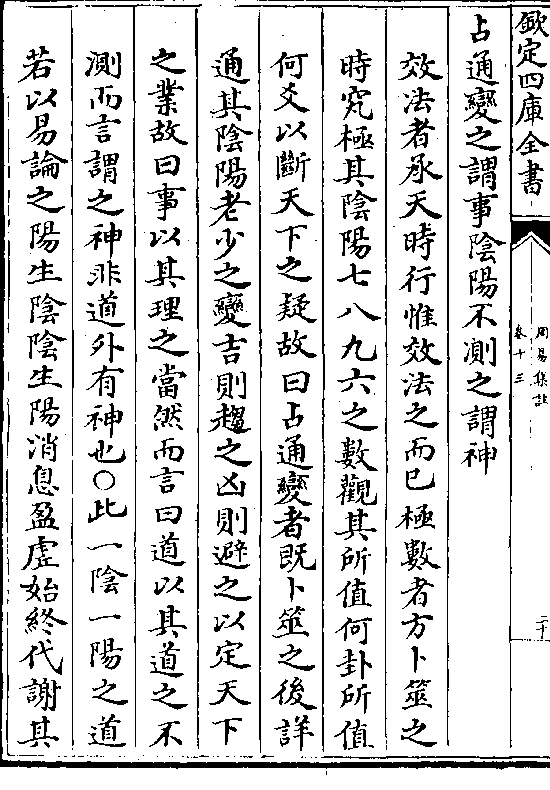 欽定四庫全書
周易集註
卷十三
二十
占通變之謂事陰陽不測之謂神
效法者承天時行惟效法之而已極數者方卜筮之
時究極其陰陽七八九六之數觀其所值何卦所值
何爻以斷天下之疑故曰占通變者既卜筮之後詳
通其陰陽老少之變吉則趨之凶則避之以定天下
之業故曰事以其理之當然而言曰道以其道之不
測而言謂之神非道外有神也○此一陰一陽之道
若以易論之陽生陰陰生陽消息盈虛始終代謝其